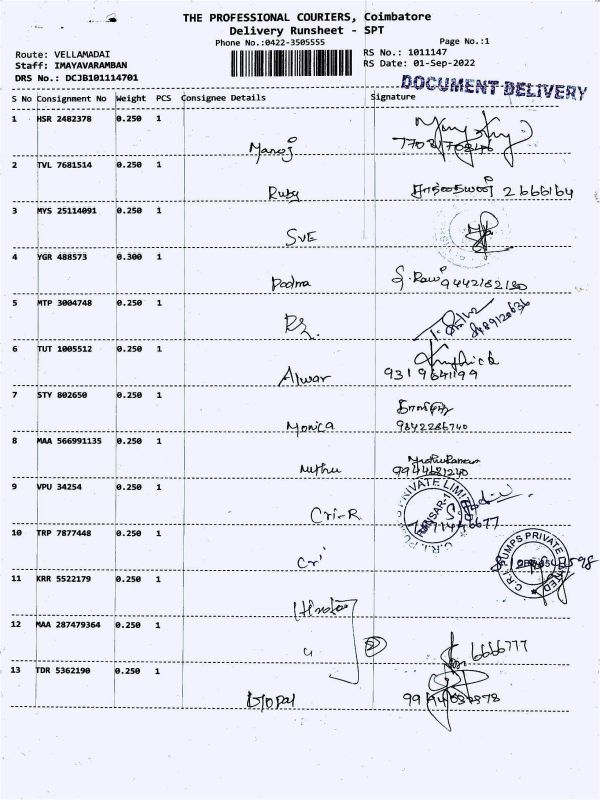 THE PROFESSIONAL COURIERS, Coimbatore
Delivery Runsheet - SPT
Phone No.:0422-3505555
Page No.:1
Route: VELLAMADAI
RS No.: 1011147
Staff: IMAYAVARAMBAN
RS Date: 01-Sep-2022
DRS No.: DCJB101114701
DOCUMENT DELIVERY
S No Consignment No Weight PCS Consignee Details Signature
1 HSR 2482378 0.250 1
Manoj
2 TVL 7681514 0.250 1
Ruby 2666164
3 MYS 25114091 0.250 1
SVE
4 YGR 488573 0.300 1
Padma 9442182180
5 MTP 3004748 0.250 1
6 TUT 1005512 0.250 1
Alwar 9319641199
7 STY 802650 0.250 1
Monica 9842286740
8 MAA 566991135 0.250 1
Muthu 9944681240
9 VPU 34254 0.250 1
Cri-R
10 TRP 7877448 0.250 1
Cri
C.R.I. PUMPS PRIVATE LIMITED
11 KRR 5522179 0.250 1
12 MAA 287479364 0.250 1
" 2 6666777
13 TDR 5362190 0.250 1
Gopal